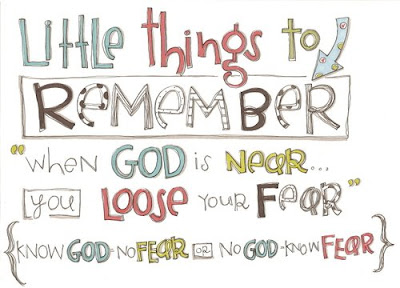 Little things to
REMEMBER
"when GOD is NEAR...
you LOOSE your FEAR"
{KNOW GOD=NO FEAR OR NO GOD=KNOW FEAR}